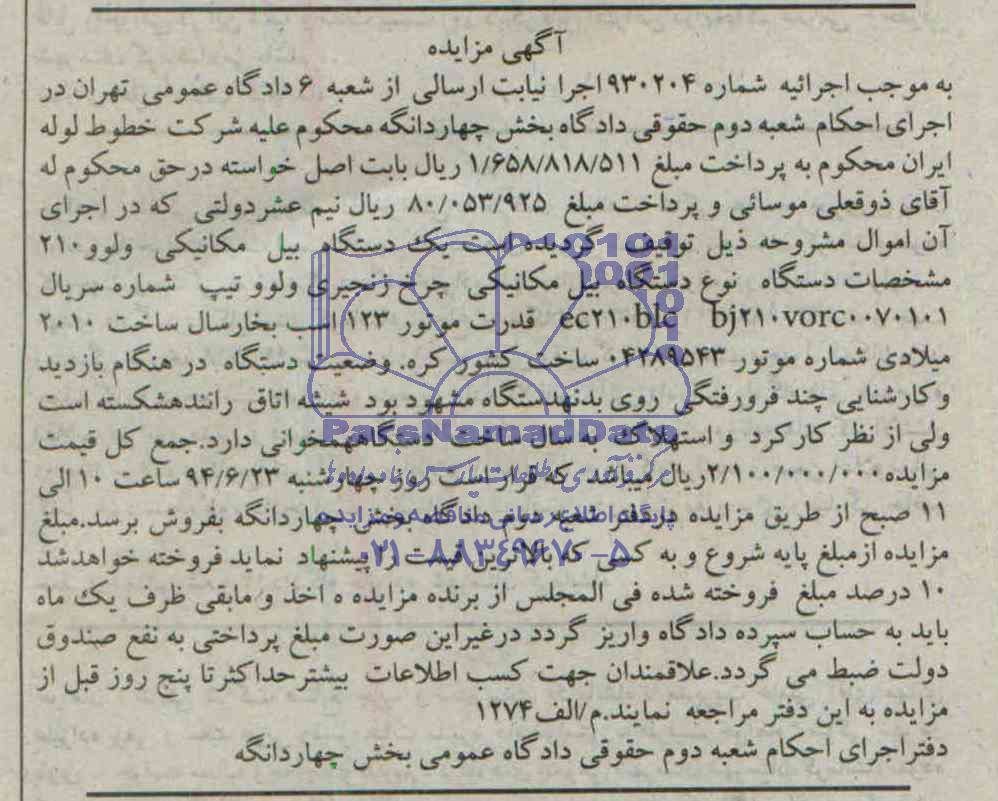 آگهی مزایده
به موجب اجرائیه شماره ۹۳۰۲۰۴ اجرا نیابت ارسالی از شعبه ۶ دادگاه عمومی تهران در
اجرای احکام شعبه دوم حقوقی دادگاه بخش چهاردانگه محکوم علیه شرکت خطوط لوله
ایران محکوم به پرداخت مبلغ ۱/۶۵۸/۸۱۸/۵۱۱ ریال بابت اصل خواسته درحق محکوم له
آقای ذوقعلی موسائی و پرداخت مبلغ ۸۰/۰۵۳/۹۲۵ ریال نیم عشردولتی که در اجرای
آن اموال مشروحه ذیل توقیف گردیده است یک دستگاه بیل مکانیکی ولوو۲۱۰
مشخصات دستگاه نوع دستگاه بیل مکانیکی چرخ زنجیری ولوو تیپ شماره سریال
ec۲۱۰blc bj۲۱۰vorc۰۰۷۰۱۰۱ قدرت موتور ۱۲۳ اسب بخارسال ساخت ۲۰۱۰
میلادی شماره موتور ۰۴۲۸۹۵۴۳ ساخت کشور کره. وضعیت دستگاه در هنگام بازدید
و کارشنایی چند فرورفتگی روی بدنهدستگاه مشهود بود شیشه اتاق رانندهشکسته است
ولی از نظر کارکرد و استهلاک به سال ساخت دستگاههمخوانی دارد.جمع کل قیمت
مزایده۲/۱۰۰/۰۰۰/۰۰۰ریال میباشد که قرار است روز چهارشنبه ۹۴/۶/۲۳ ساعت ۱۰ الی
۱۱ صبح از طریق مزایده دردفتر شعبه دوم دادگاه بخش چهاردانگه بفروش برسد.مبلغ
مزایده ازمبلغ پایه شروع و به کسی که بالاترین قیمت را پیشنهاد نماید فروخته خواهدشد
۱۰ درصد مبلغ فروخته شده فی المجلس از برنده مزایده ه اخذ و مابقی ظرف یک ماه
باید به حساب سپرده دادگاه واریز گردد درغیراین صورت مبلغ پرداختی به نفع صندوق
دولت ضبط می گردد.علاقمندان جهت کسب اطلاعات بیشترحداکثرتا پنج روز قبل از
مزایده به این دفتر مراجعه نمایند.م/الف۱۲۷۴
دفتراجرای احکام شعبه دوم حقوقی دادگاه عمومی بخش چهاردانگه
ParsNamadData
۰۲۱-۸۸۳۴۹۶۷۰-۵